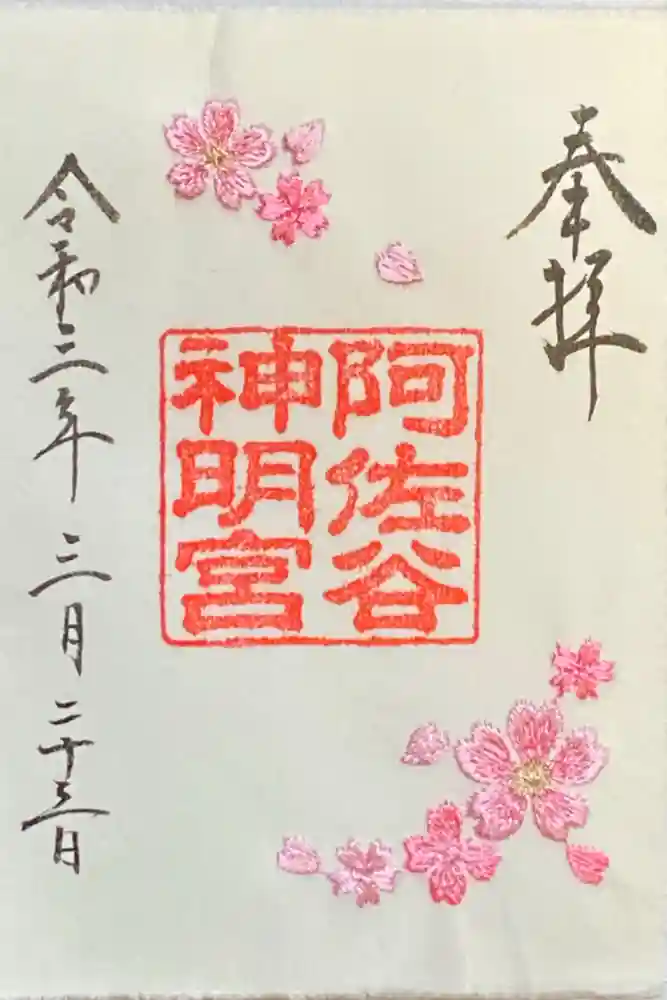 奉拝
阿佐谷
神明宮
令和三年三月二十三日